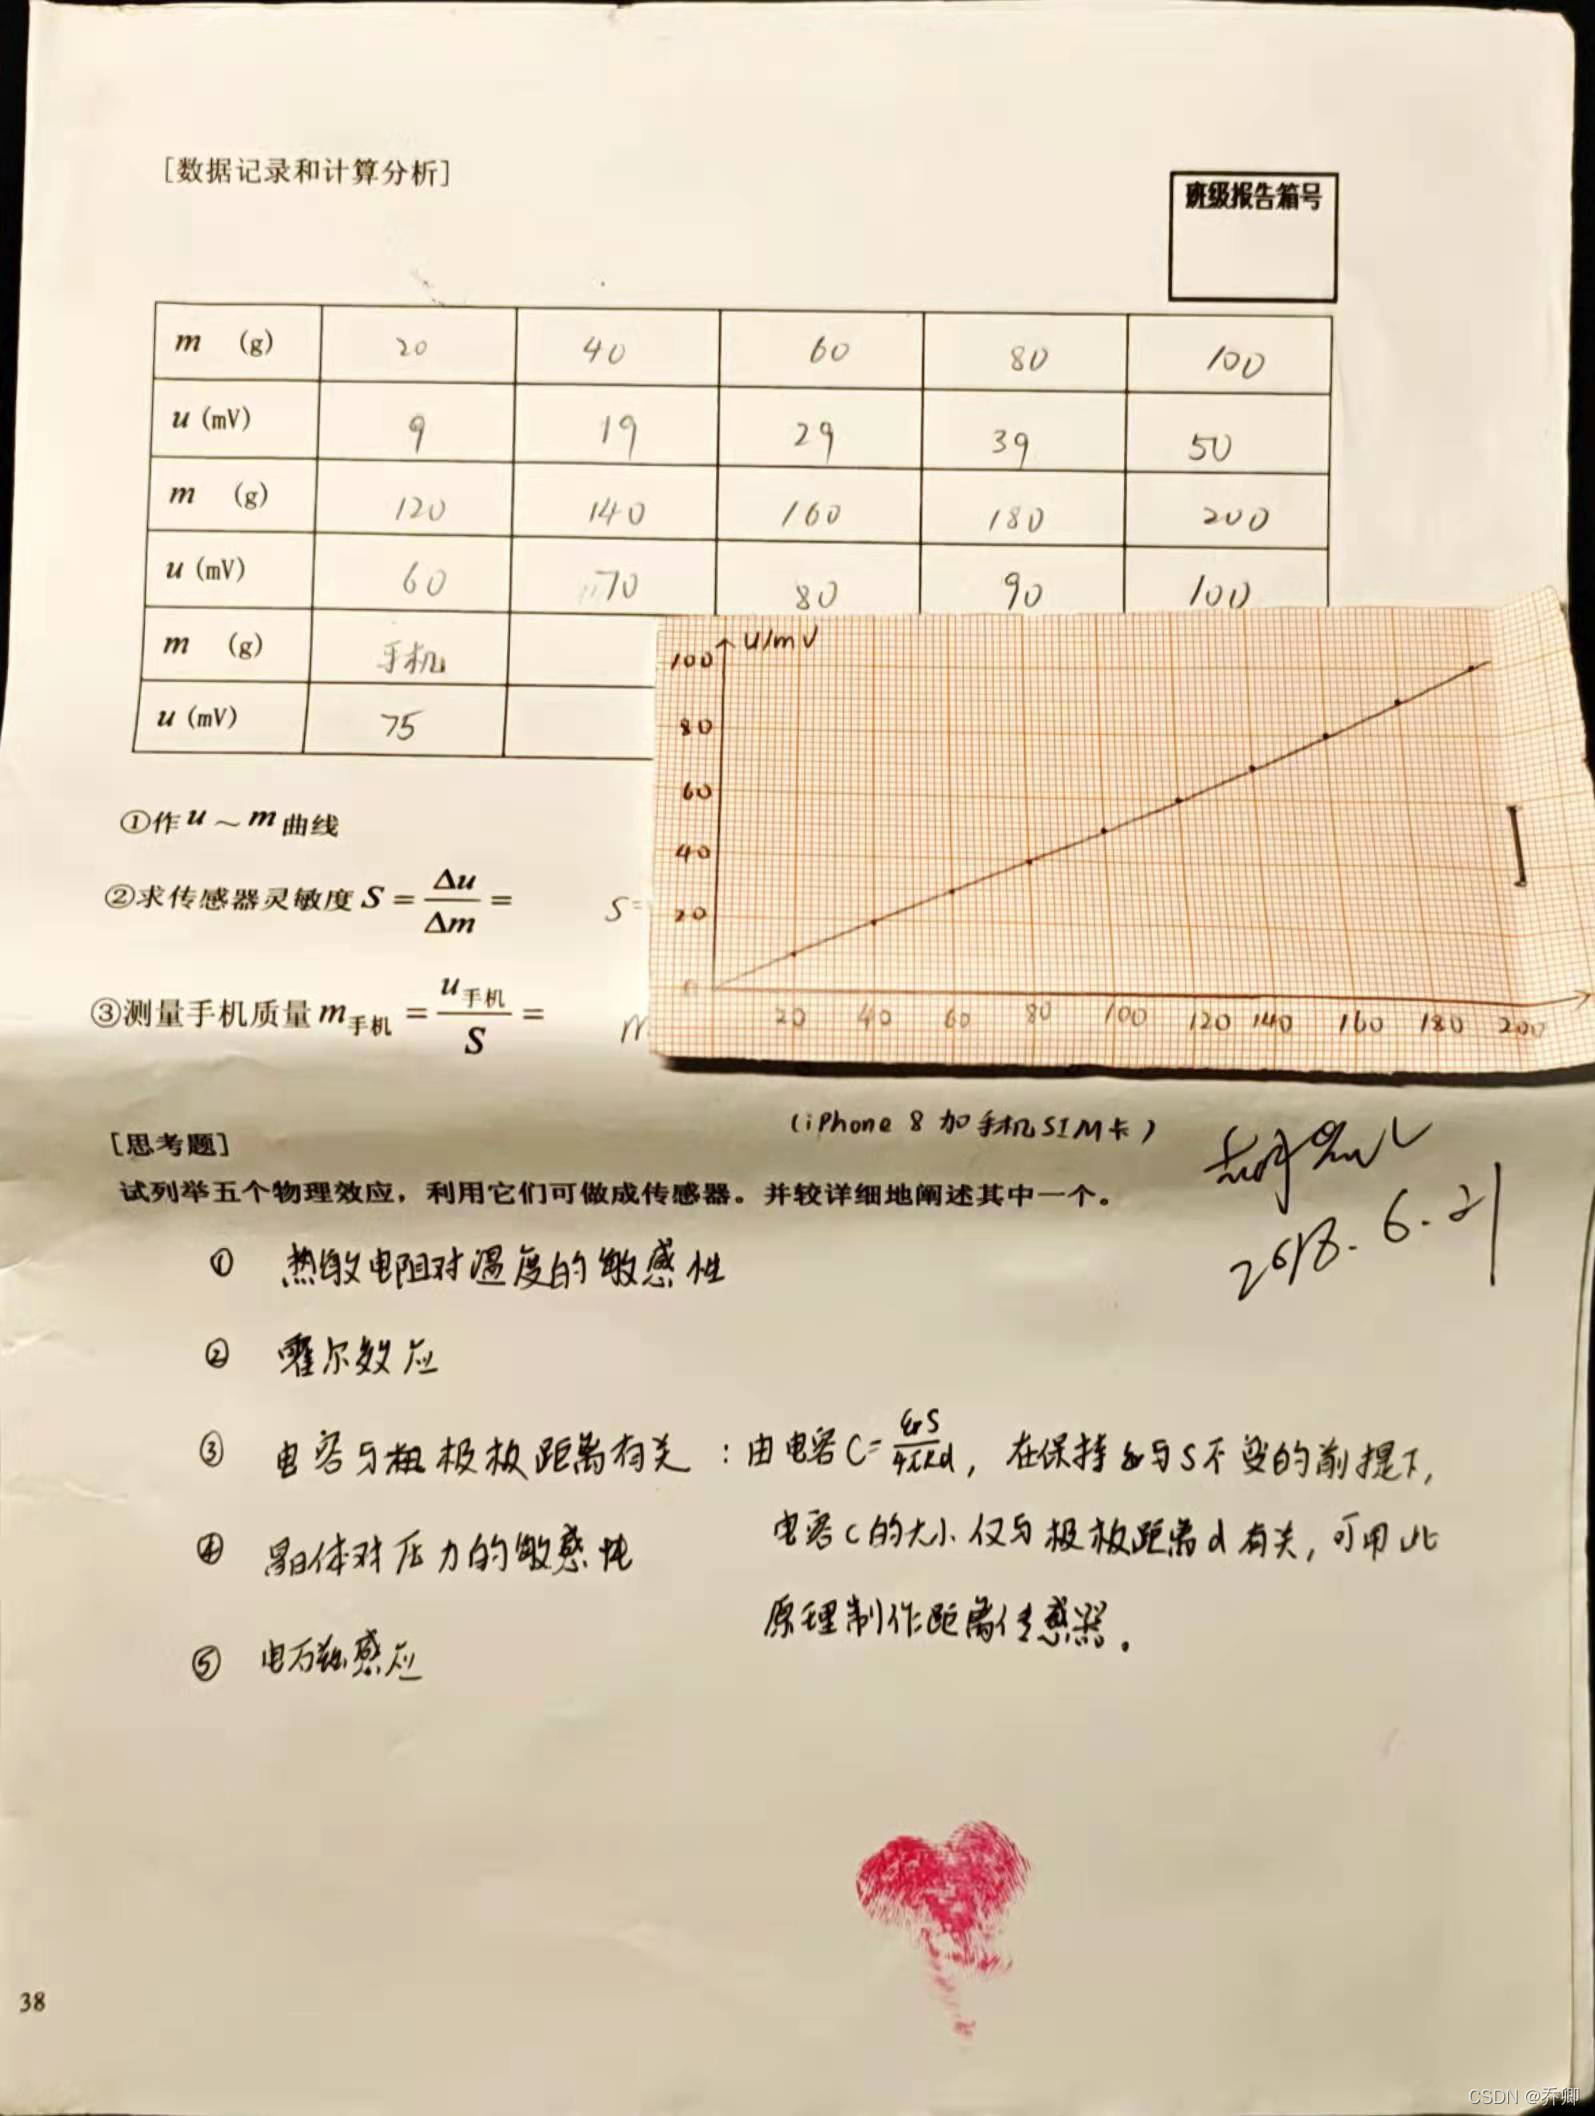 [数据记录和计算分析]
班级报告箱号
m (g) 20 40 60 80 100
u (mV) 9 19 29 39 50
m (g) 120 140 160 180 200
u (mV) 60 70 80 90 100
m (g) 手机
u (mV) 75
u/mV
100
80
60
40
20
0
20 40 60 80 100 120 140 160 180 200
①作 u ~ m 曲线
②求传感器灵敏度 S = Δu/Δm = S=
③测量手机质量 m手机 = u手机/S = m
(iPhone 8 加手机SIM卡)
2018.6.21
[思考题]
试列举五个物理效应，利用它们可做成传感器。并较详细地阐述其中一个。
① 热敏电阻对温度的敏感性
② 霍尔效应
③ 电容与极板距离有关：由电容C=εrS/4πkd，在保持ε与S不变的前提下，
电容C的大小仅与极板距离d有关，可用此
原理制作距离传感器。
④ 晶体对压力的敏感性
⑤ 电磁感应
38
CSDN @乔卿